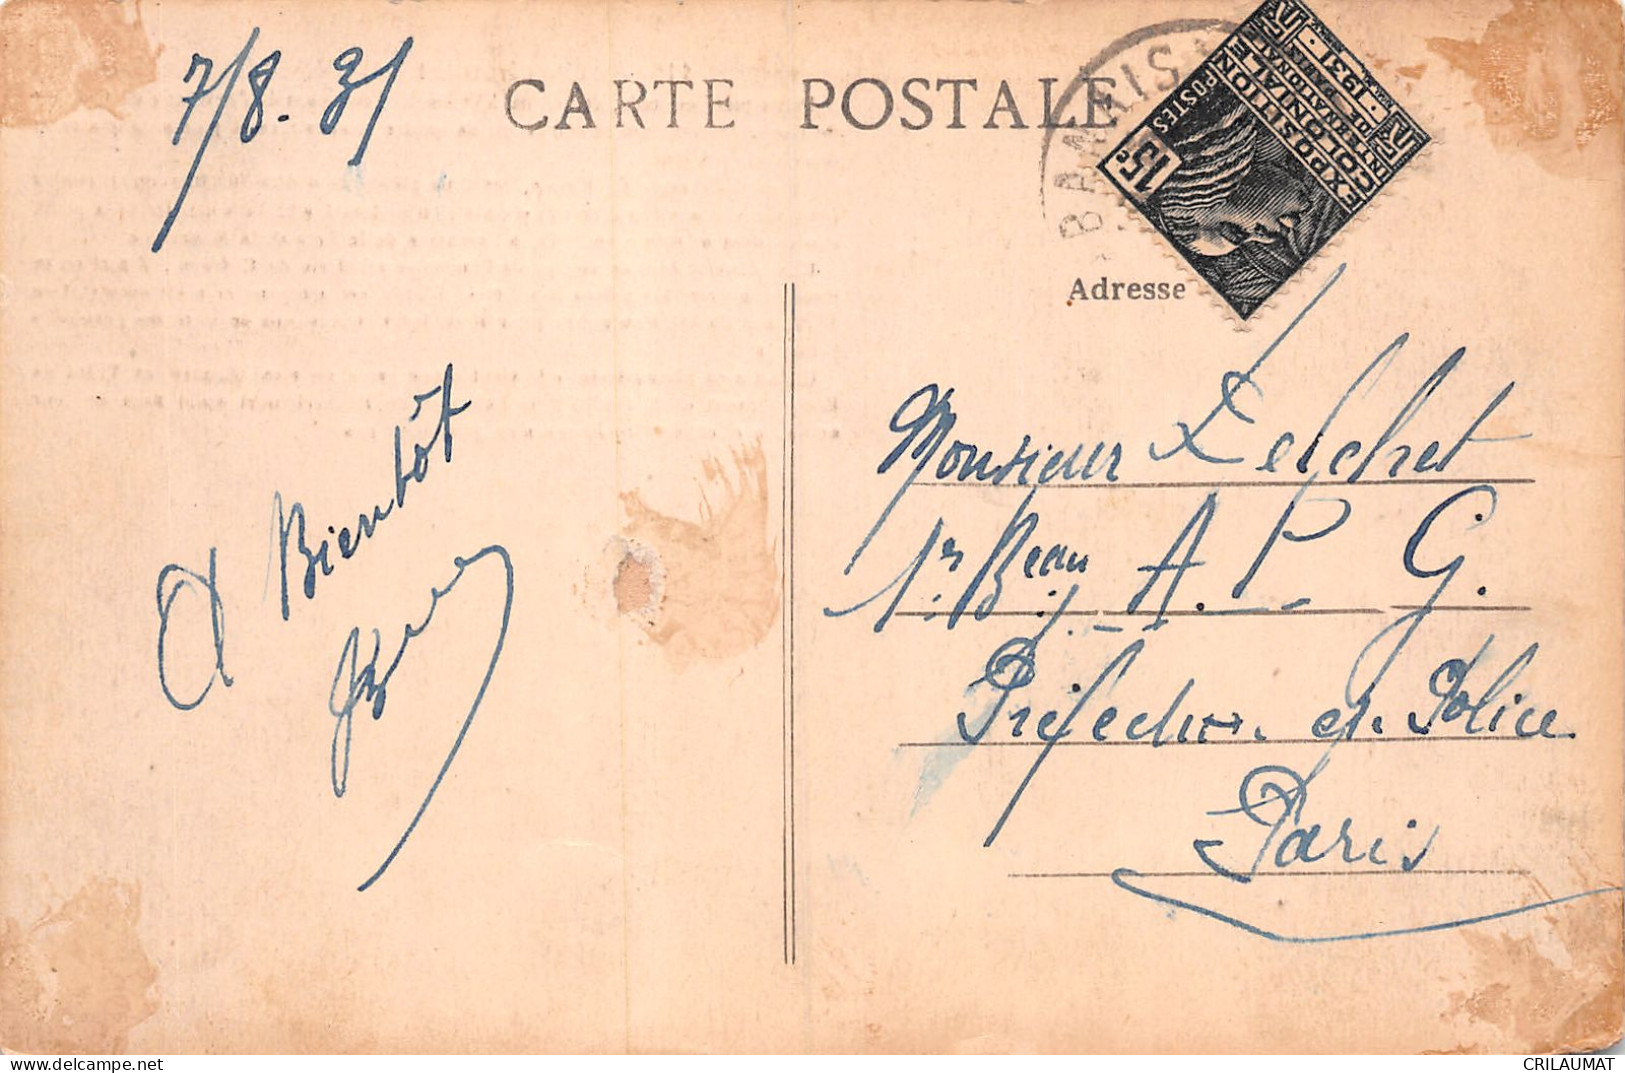 7/8. 31
CARTE POSTALE
EXPOSITION
COLONIALE
INTERNATIONALE
DE PARIS
· 1931 ·
POSTES
15c
Adresse
A Bientôt
Monsieur Delchet
1r. Beau A. P. G.
Préfecture de Police
Paris
CRILAUMAT